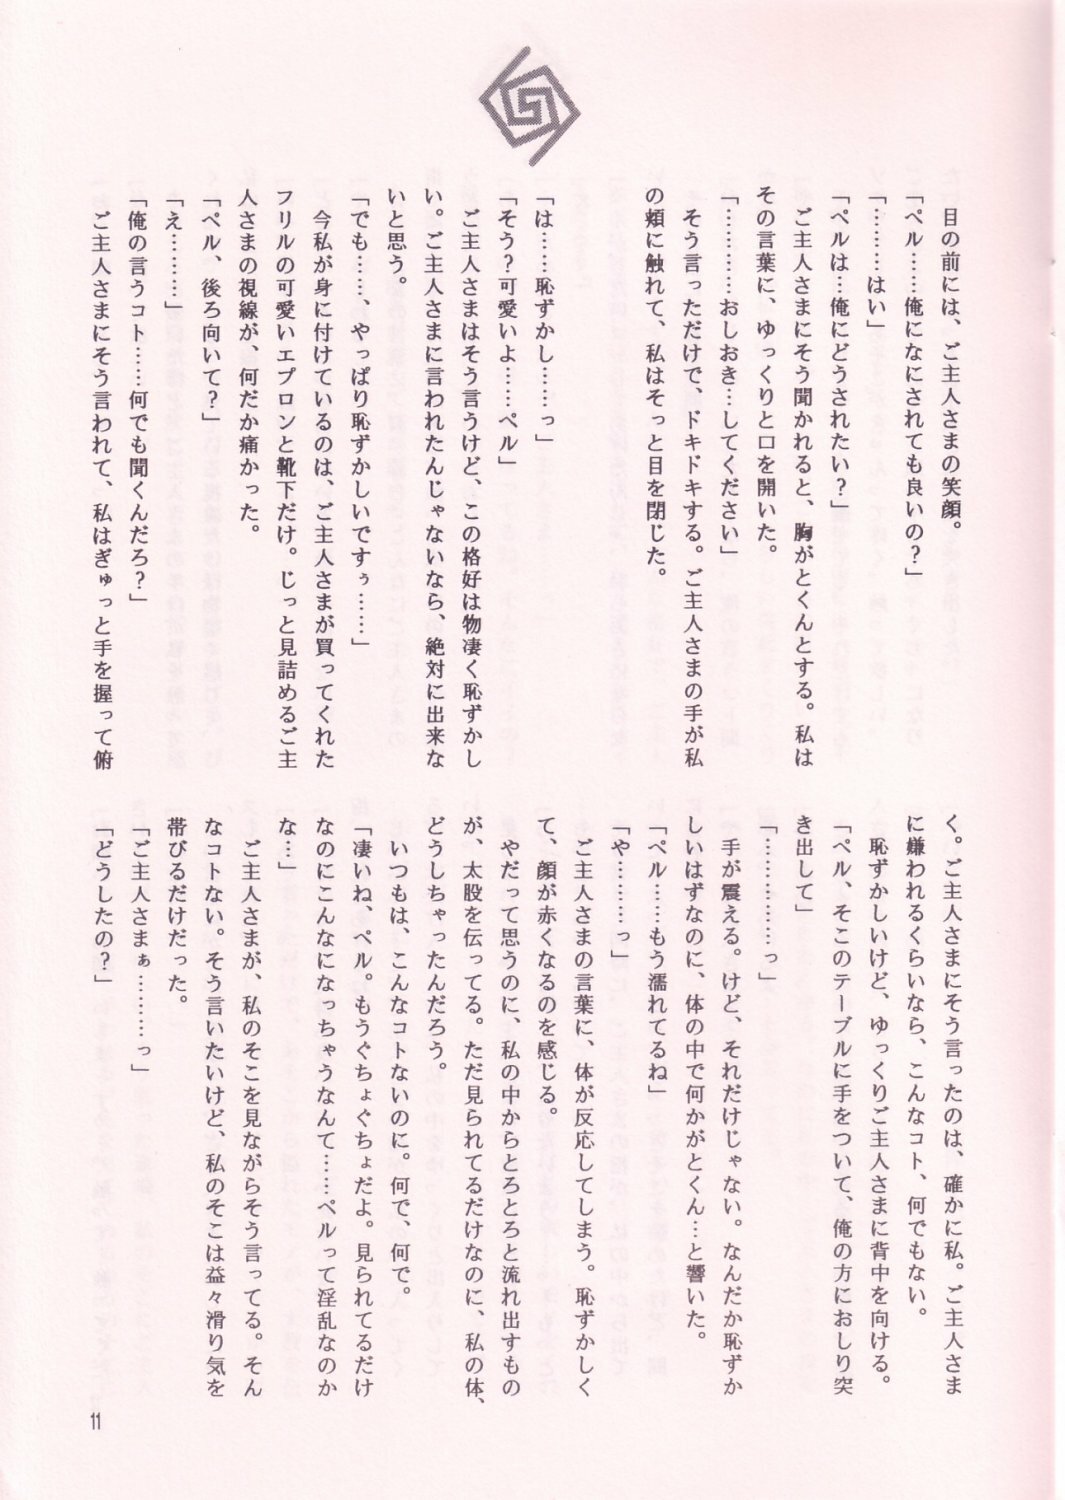 目の前には、ご主人さまの笑顔。
「ペル……俺になにされても良いの？」
「………はい」
「ペルは…俺にどうされたい？」
ご主人さまにそう聞かれると、胸がとくんとする。私は
その言葉に、ゆっくりと口を開いた。
「…………おしおき…してください」
そう言っただけで、ドキドキする。ご主人さまの手が私
の頬に触れて、私はそっと目を閉じた。
「は……恥ずかし……っ」
「そう？可愛いよ……ペル」
ご主人さまはそう言うけど、この格好は物凄く恥ずかし
い。ご主人さまに言われたんじゃないなら、絶対に出来な
いと思う。
「でも……、やっぱり恥ずかしいですぅ……」
今私が身に付けているのは、ご主人さまが買ってくれた
フリルの可愛いエプロンと靴下だけ。じっと見詰めるご主
人さまの視線が、何だか痛かった。
「ペル、後ろ向いて？」
「え………」
「俺の言うコト……何でも聞くんだろ？」
ご主人さまにそう言われて、私はぎゅっと手を握って俯
く。ご主人さまにそう言ったのは、確かに私。ご主人さま
に嫌われるくらいなら、こんなコト、何でもない。
恥ずかしいけど、ゆっくりご主人さまに背中を向ける。
「ペル、そこのテーブルに手をついて、俺の方におしり突
き出して」
「…………っ」
手が震える。けど、それだけじゃない。なんだか恥ずか
しいはずなのに、体の中で何かがとくん…と響いた。
「ペル……もう濡れてるね」
「や………っ」
ご主人さまの言葉に、体が反応してしまう。恥ずかしく
て、顔が赤くなるのを感じる。
やだって思うのに、私の中からとろとろと流れ出すもの
が、太股を伝ってる。ただ見られてるだけなのに、私の体、
どうしちゃったんだろう。
いつもは、こんなコトないのに。何で、何で。
「凄いね、ペル。もうぐちょぐちょだよ。見られてるだけ
なのにこんなになっちゃうなんて……ペルって淫乱なのか
な…」
ご主人さまが、私のそこを見ながらそう言ってる。そん
なコトない。そう言いたいけど、私のそこは益々滑り気を
帯びるだけだった。
「ご主人さまぁ………っ」
「どうしたの？」
11